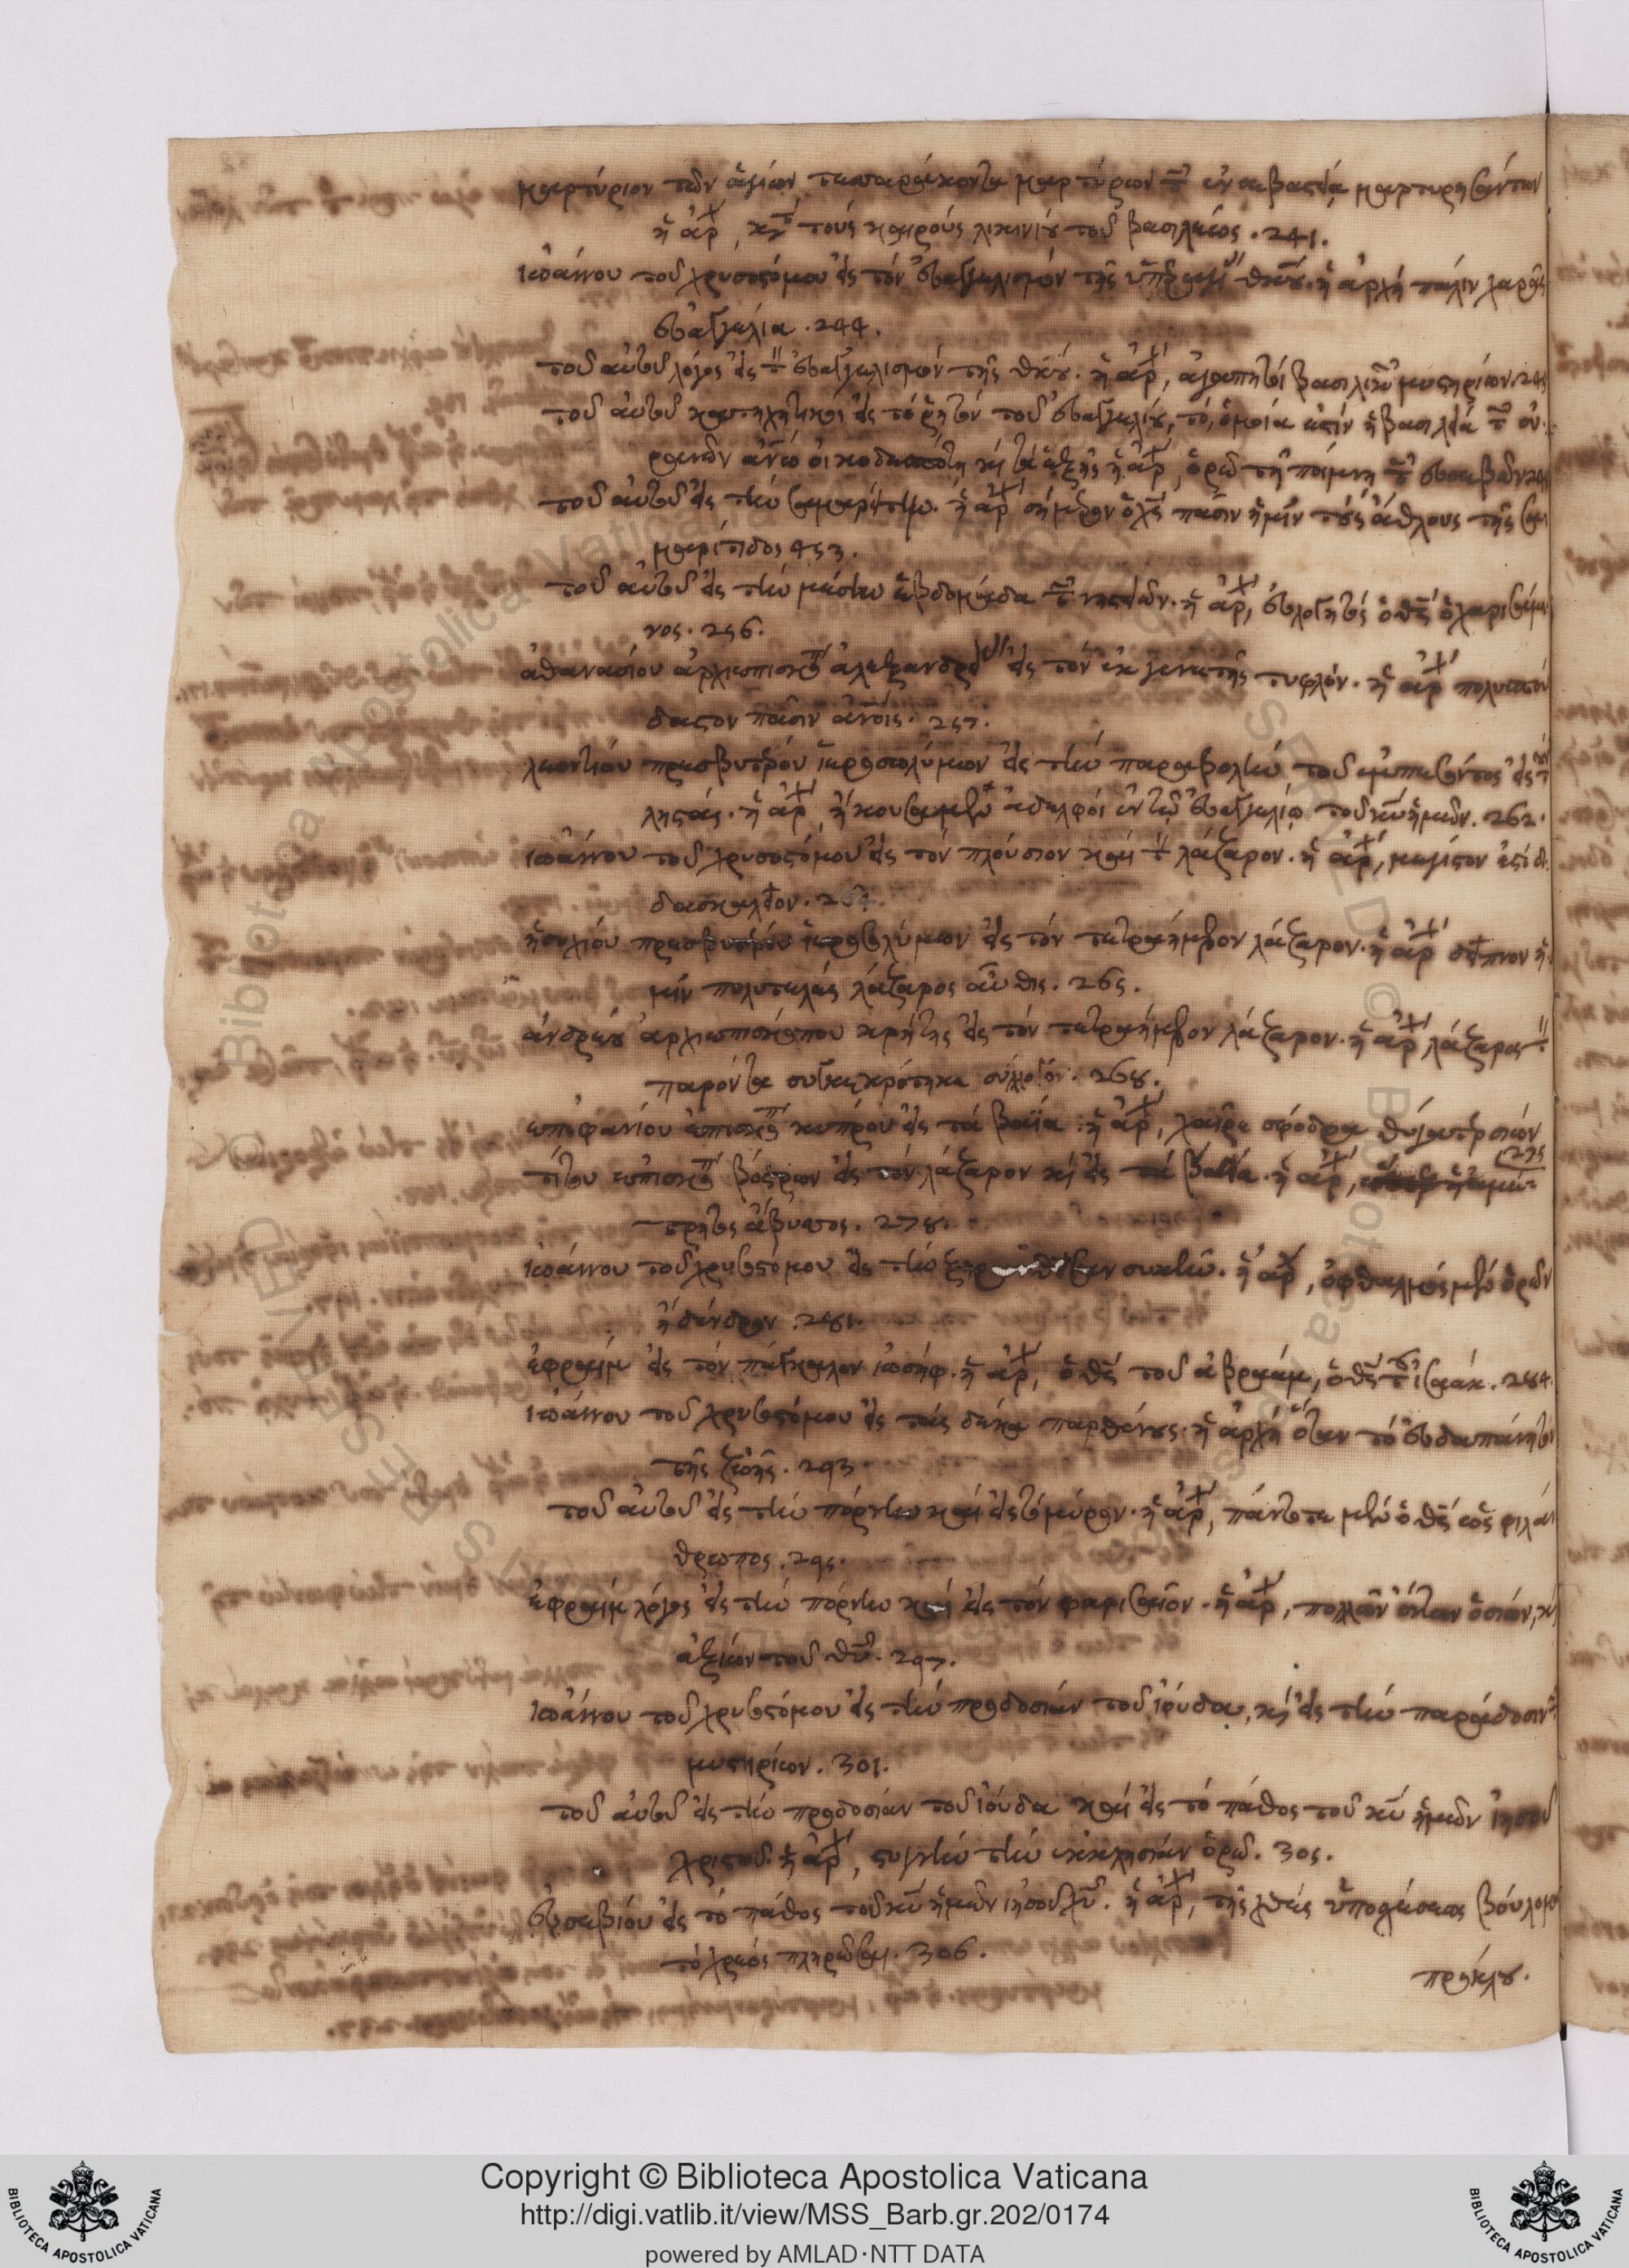 μαρτύριον τῶν ἁγίων τεσσαράκοντα μαρτύρων τ̄ ἐν σεβαστεία μαρτυρησάντων
ἡ ἀρχ, κτ τούς καιρούς λικινίου τοῦ βασιλέως . 241.
Ἰωάννου τοῦ χρυσοστόμου εἰς τόν εὐαγγελισμόν τῆς ὑπεραγι θκου. ἡ ἀρχή πάλιν χαρᾶς
εὐαγγέλια . 244.
τοῦ αὐτοῦ λόγος εἰς τ εὐαγγελισμόν τῆς θκου. ἡ ἀρχ, ἀγαπητοί βασιλικῶν μυστηρίων. 245
τοῦ αὐτοῦ κατηχητικός εἰς τό ῥητόν τοῦ εὐαγγελίου, τό, ὁμοία ἐστίν ἡ βασιλεία τ οὐ
ρανῶν ἀνω οἰκοδεσπότη κ τά ἑξῆς ἡ ἀρχ, ὁρῶ τῆ ποίμνη τ εὐσεβῶν
τοῦ αὐτοῦ εἰς τήν σαμαρίτην. ἡ ἀρχ σήμερον πᾶσιν ἡμῖν τούς ἄθλους τῆς σα
μαρίτιδος 253.
τοῦ αὐτοῦ εἰς τήν μέσην ἑβδομάδα τ νηστειῶν. ἡ ἀρχ, εὐλογητός ὁ θς ὁ χαρισάμε
νος . 256.
ἀθανασίου ἀρχιεπισκπ ἀλεξανδρ εἰς τόν ἐκ γενετῆς τυφλόν. ἡ ἀρχ
πᾶσιν ἀνοις . 257.
λεοντίου πρεσβυτέρου ἱεροσολύμων εἰς τήν παραβολήν τοῦ ἐμπεσόντος εἰς τ
ληστάς. ἡ ἀρχ, ἠκούσαμεν ἀδελφοί ἐν τῶ εὐαγγελίω τοῦ κυ ἡμῶν. 262.
Ἰωάννου τοῦ χρυσοστόμου εἰς τόν πλούσιον καί τ λάζαρον. ἡ ἀρχ, μέγιστον ἐστί δι
δασκαλεῖον. 264.
ἡσυχίου πρεσβυτέρου ἱεροσολύμων εἰς τόν τετραήμερον λάζαρον. ἡ ἀρχ δεῖπνον ἡ
μῖν πολυτελές λάζαρος αὖθις. 265.
ἀνδρέου ἀρχιεπισκόπου κρήτης εἰς τόν τετραήμερον λάζαρον. ἡ ἀρχ λάζαρος τ
παρόντα συγκεκρότηκε σύλλογον. 268.
ἐπιφανίου ἐπισκπ κύπρου εἰς τά βαϊα. ἡ ἀρχ, χαῖρε σφόδρα θύγατερ σιών
275
τίτου ἐπισκπ βόστρων εἰς τόν λάζαρον κ εἰς τά βαϊα. ἡ ἀρχ,
τρητος ἄβυσσος. 278.
Ἰωάννου τοῦ χρυσοστόμου εἰς τήν συκῆν. ἡ ἀρχ, ὀφθαλμός μέν ὁρῶν
ἡ δένδρον. 281.
ἐφραίμ εἰς τόν πάγκαλον ἰωσήφ. ἡ ἀρχ, ὁ θς τοῦ ἀβραάμ, ὁ θς τ ἰσαάκ. 284.
Ἰωάννου τοῦ χρυσοστόμου εἰς τάς δέκα παρθένους. ἡ ἀρχή ὅταν τό εὐδαπάνητον
τῆς ζωῆς. 293.
τοῦ αὐτοῦ εἰς τήν πόρνην καί εἰς τό μύρον. ἡ ἀρχ, πάντοτε μέν ὁ θς ὡς φιλάν
θρωπος . 295.
ἐφραίμ λόγος εἰς τήν πόρνην καί εἰς τόν φαρισαῖον. ἡ ἀρχ, πολλῶν ὄντων ὁσίων, κ
ἀξίων τοῦ θυ. 297.
Ἰωάννου τοῦ χρυσοστόμου εἰς τήν προδοσίαν τοῦ ἰούδα, κ εἰς τήν παράδοσιν τ
μυστηρίων. 301.
τοῦ αὐτοῦ εἰς τήν προδοσίαν τοῦ ἰούδα καί εἰς τό πάθος τοῦ κυ ἡμῶν ἰησοῦ
χριστοῦ. ἡ ἀρχ, στυγνήν τήν ἐκκλησίαν ὁρῶ. 305.
εὐσεβίου εἰς τό πάθος τοῦ κυ ἡμῶν ἰησοῦ χυ. ἡ ἀρχ, τῆς χθές ὑποσχέσεως βούλομαι
τό χρέος πληρῶσαι. 306.
πρόκλου.
Copyright © Biblioteca Apostolica Vaticana
http://digi.vatlib.it/view/MSS_Barb.gr.202/0174
powered by AMLAD·NTT DATA
BIBLIOTECA APOSTOLICA VATICANA
BIBLIOTECA APOSTOLICA VATICANA